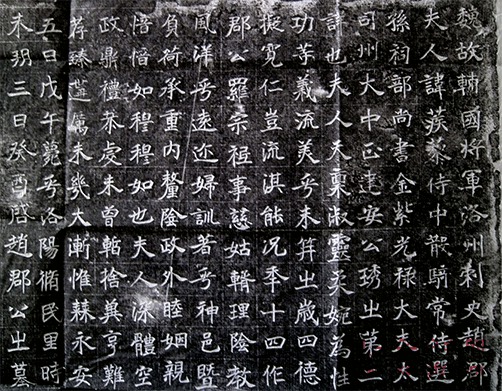 魏故輔國將軍洛州刺史趙郡
夫人諱蒺藜侍中散騎常侍選
孫祠部尚書金紫光祿大夫太
司州大中正建安公琇之第二
許也夫人天稟淑靈柔婉為性
功等義流美乎未笄之歲四德
擬寬仁豈流淇能況季十四作
郡公羅宗祖事慈姑輯理陰教
風洋乎遠迩婦訓著乎神邑暨
負荷承重内釐陰政外睦姻親
愔愔如穆穆如也夫人深體空
政鼎禮恭虔未曾暫捨冀亨難
荐臻遘厲未幾大漸惟棘永安
五日戊午薨乎洛陽脩民里時
未朔三日癸酉啓趙郡公之墓